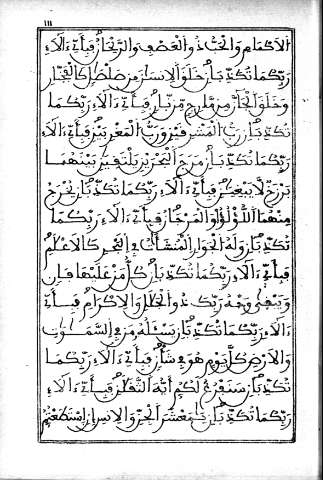 ١١١
الاكمام والحب ذو العصف والريحان فبأي ءالاء
ربكما تكذبان خلق الانسان من صلصل كالفخار
وخلق الجان من مارج من نار فبأي ءالاء ربكما
تكذبان رب المشرقين ورب المغربين فبأي ءالاء
ربكما تكذبان مرج البحرين يلتقين بينهما
برزخ لا يبغين فبأي ءالاء ربكما تكذبان يخرج
منهما اللؤلؤ والمرجان فبأي ءالاء ربكما
تكذبان وله الجوار المنشآت في البحر كالاعلم
فبأي ءالاء ربكما تكذبان كل من عليها فان
ويبقى وجه ربك ذو الجلل والاكرام فبأي
ءالاء ربكما تكذبان يسئله من في السموت
والارض كل يوم هو في شأن فبأي ءالاء ربكما
تكذبان سنفرغ لكم أيه الثقلن فبأي ءالاء
ربكما تكذبان يمعشر الجن والانس إن استطعتم